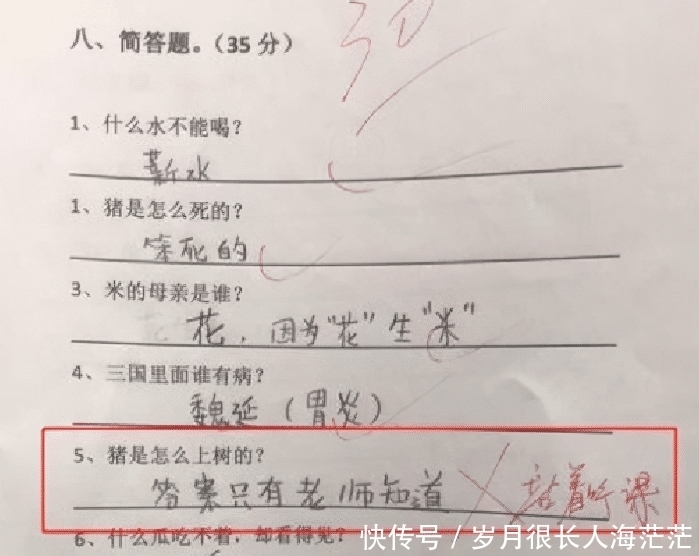 八、简答题。（35 分）
30
1、什么水不能喝？
薪水
1、猪是怎么死的？
笨死的
3、米的母亲是谁？
花，因为"花"生"米"
4、三国里面谁有病？
魏延（胃炎）
5、猪是怎么上树的？
答案只有老师知道 站着听课
6、什么瓜吃不着，却看得见？
快传号／岁月很长人海茫茫